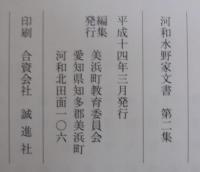 河和水野家文書　第二集
平成十四年三月発行
編集
発行　美浜町教育委員会
愛知県知多郡美浜町
河和北田面一〇六
印刷　合資会社　誠進社